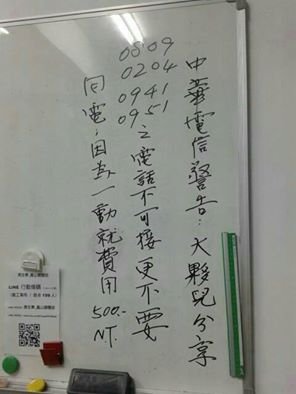 中華電信警告：大夥兒分享
0809
0204
0941
0951
之電話不可接更不要
回電，因為一動就費用500.-
NT.
LINE 行動條碼